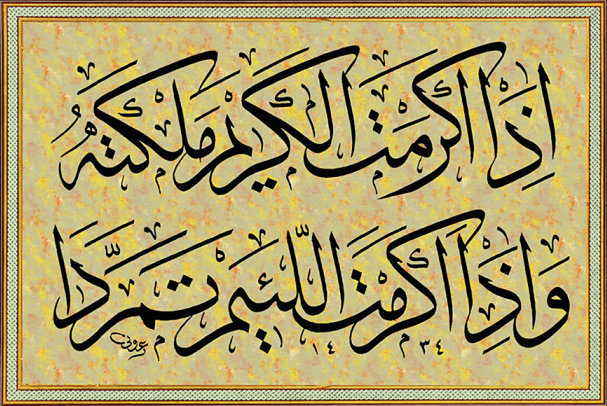 إِذَا أَكْرَمْتَ الْكَرِيمَ مَلَكْتَهُ
وَإِذَا أَكْرَمْتَ اللَّئِيمَ تَمَرَّدَا
١٤٣٤